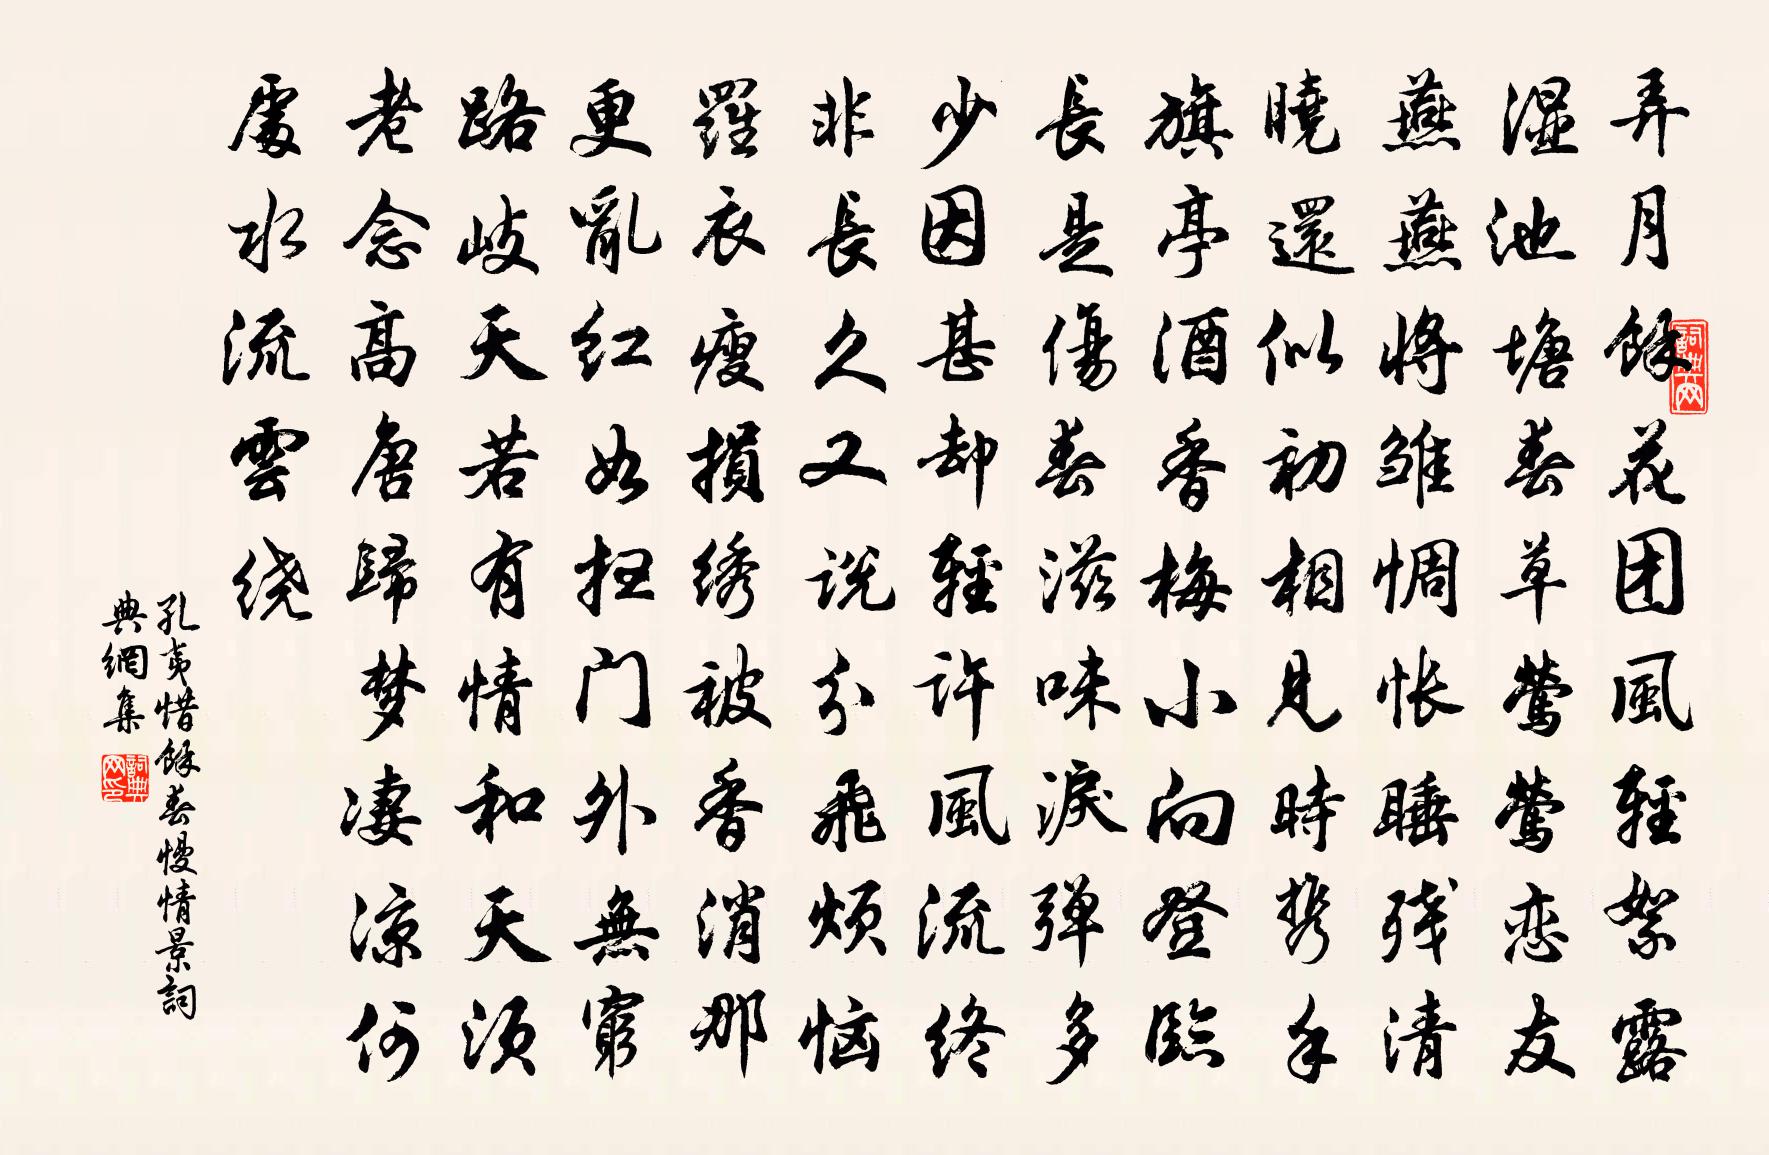 弄月餘花团風輕絮露
湿池塘春草鶯鶯恋友
燕燕将雏惆怅睡残清
曉還似初相見時携手
旗亭酒香梅小向登臨
長是傷春滋味淚弹多
少因甚却輕許風流终
非長久又说分飛烦恼
羅衣瘦損绣被香消那
更亂红如扫门外無窮
路岐天若有情和天须
老念高唐歸梦凄凉何
處水流雲绕
孔夷惜餘春慢情景詞
典網集